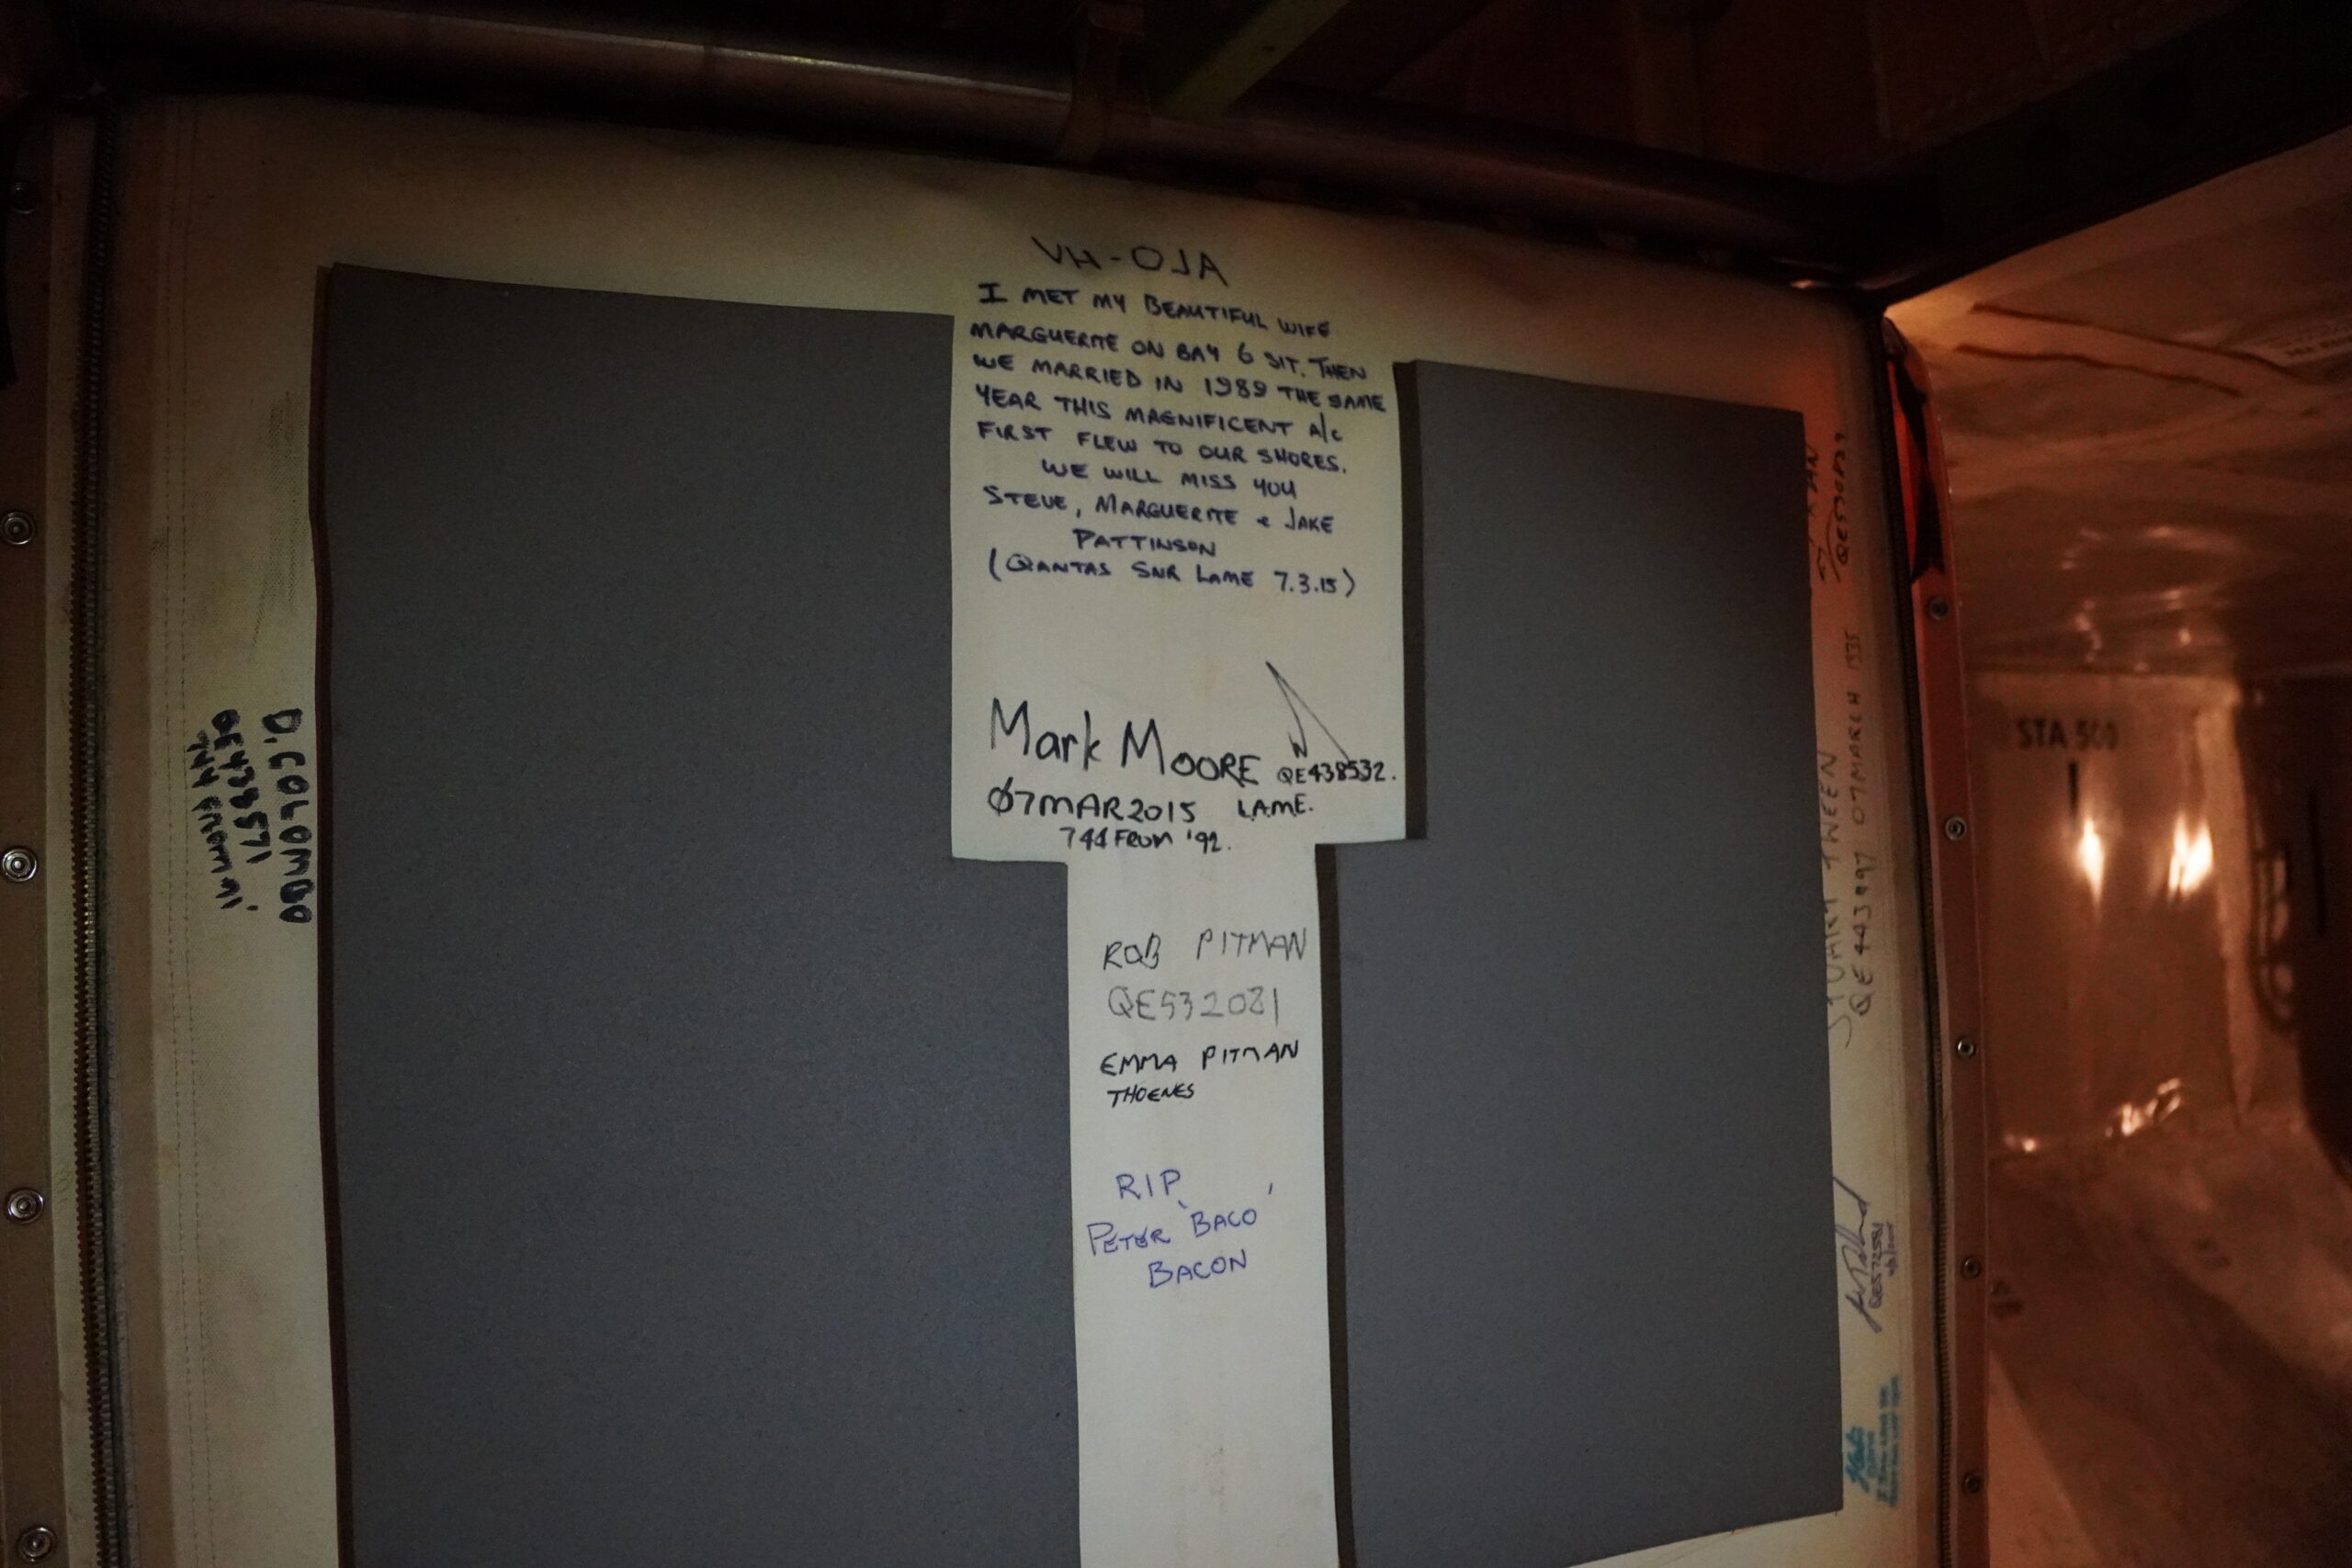 VH-OJA
I MET MY BEAUTIFUL WIFE
MARGUERITE ON BAY 6 SIT. THEN
WE MARRIED IN 1989 THE SAME
YEAR THIS MAGNIFICENT A/C
FIRST FLEW TO OUR SHORES.
WE WILL MISS YOU
STEVE, MARGUERITE & JAKE
PATTINSON
(QANTAS SNR LAME 7.3.15)
Mark MOORE QE438532.
07MAR2015 LAME.
744 FROM '92.
ROB PITMAN
QE532081
EMMA PITMAN
THOENES
RIP
PETER 'BACO'
BACON
D. COLOMBO
STUART TWEEN
QE443997 07MARCH 1535
QE572581
STA 500